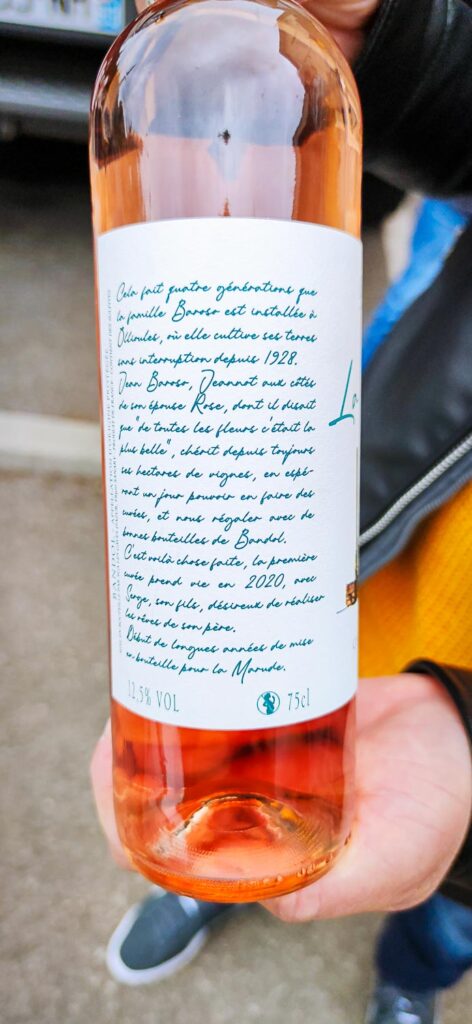 Cela fait quatre générations que
la famille Baroso est installée à
Ollioules, où elle cultive ses terres
sans interruption depuis 1928.
Jean Baroso, Jeannot aux côtés
de son épouse Rose, dont il disait
que "de toutes les fleurs c'était la
plus belle", chérit depuis toujours
ses hectares de vignes, en espé-
rant un jour pouvoir en faire des
cuvées, et nous régaler avec de
bonnes bouteilles de Bandol.
C'est voilà chose faite, la première
cuvée prend vie en 2020, avec
Serge, son fils, désireux de réaliser
les rêves de son père.
Début de longues années de mise
en bouteille pour la Marude.
12,5% VOL 75cl
La